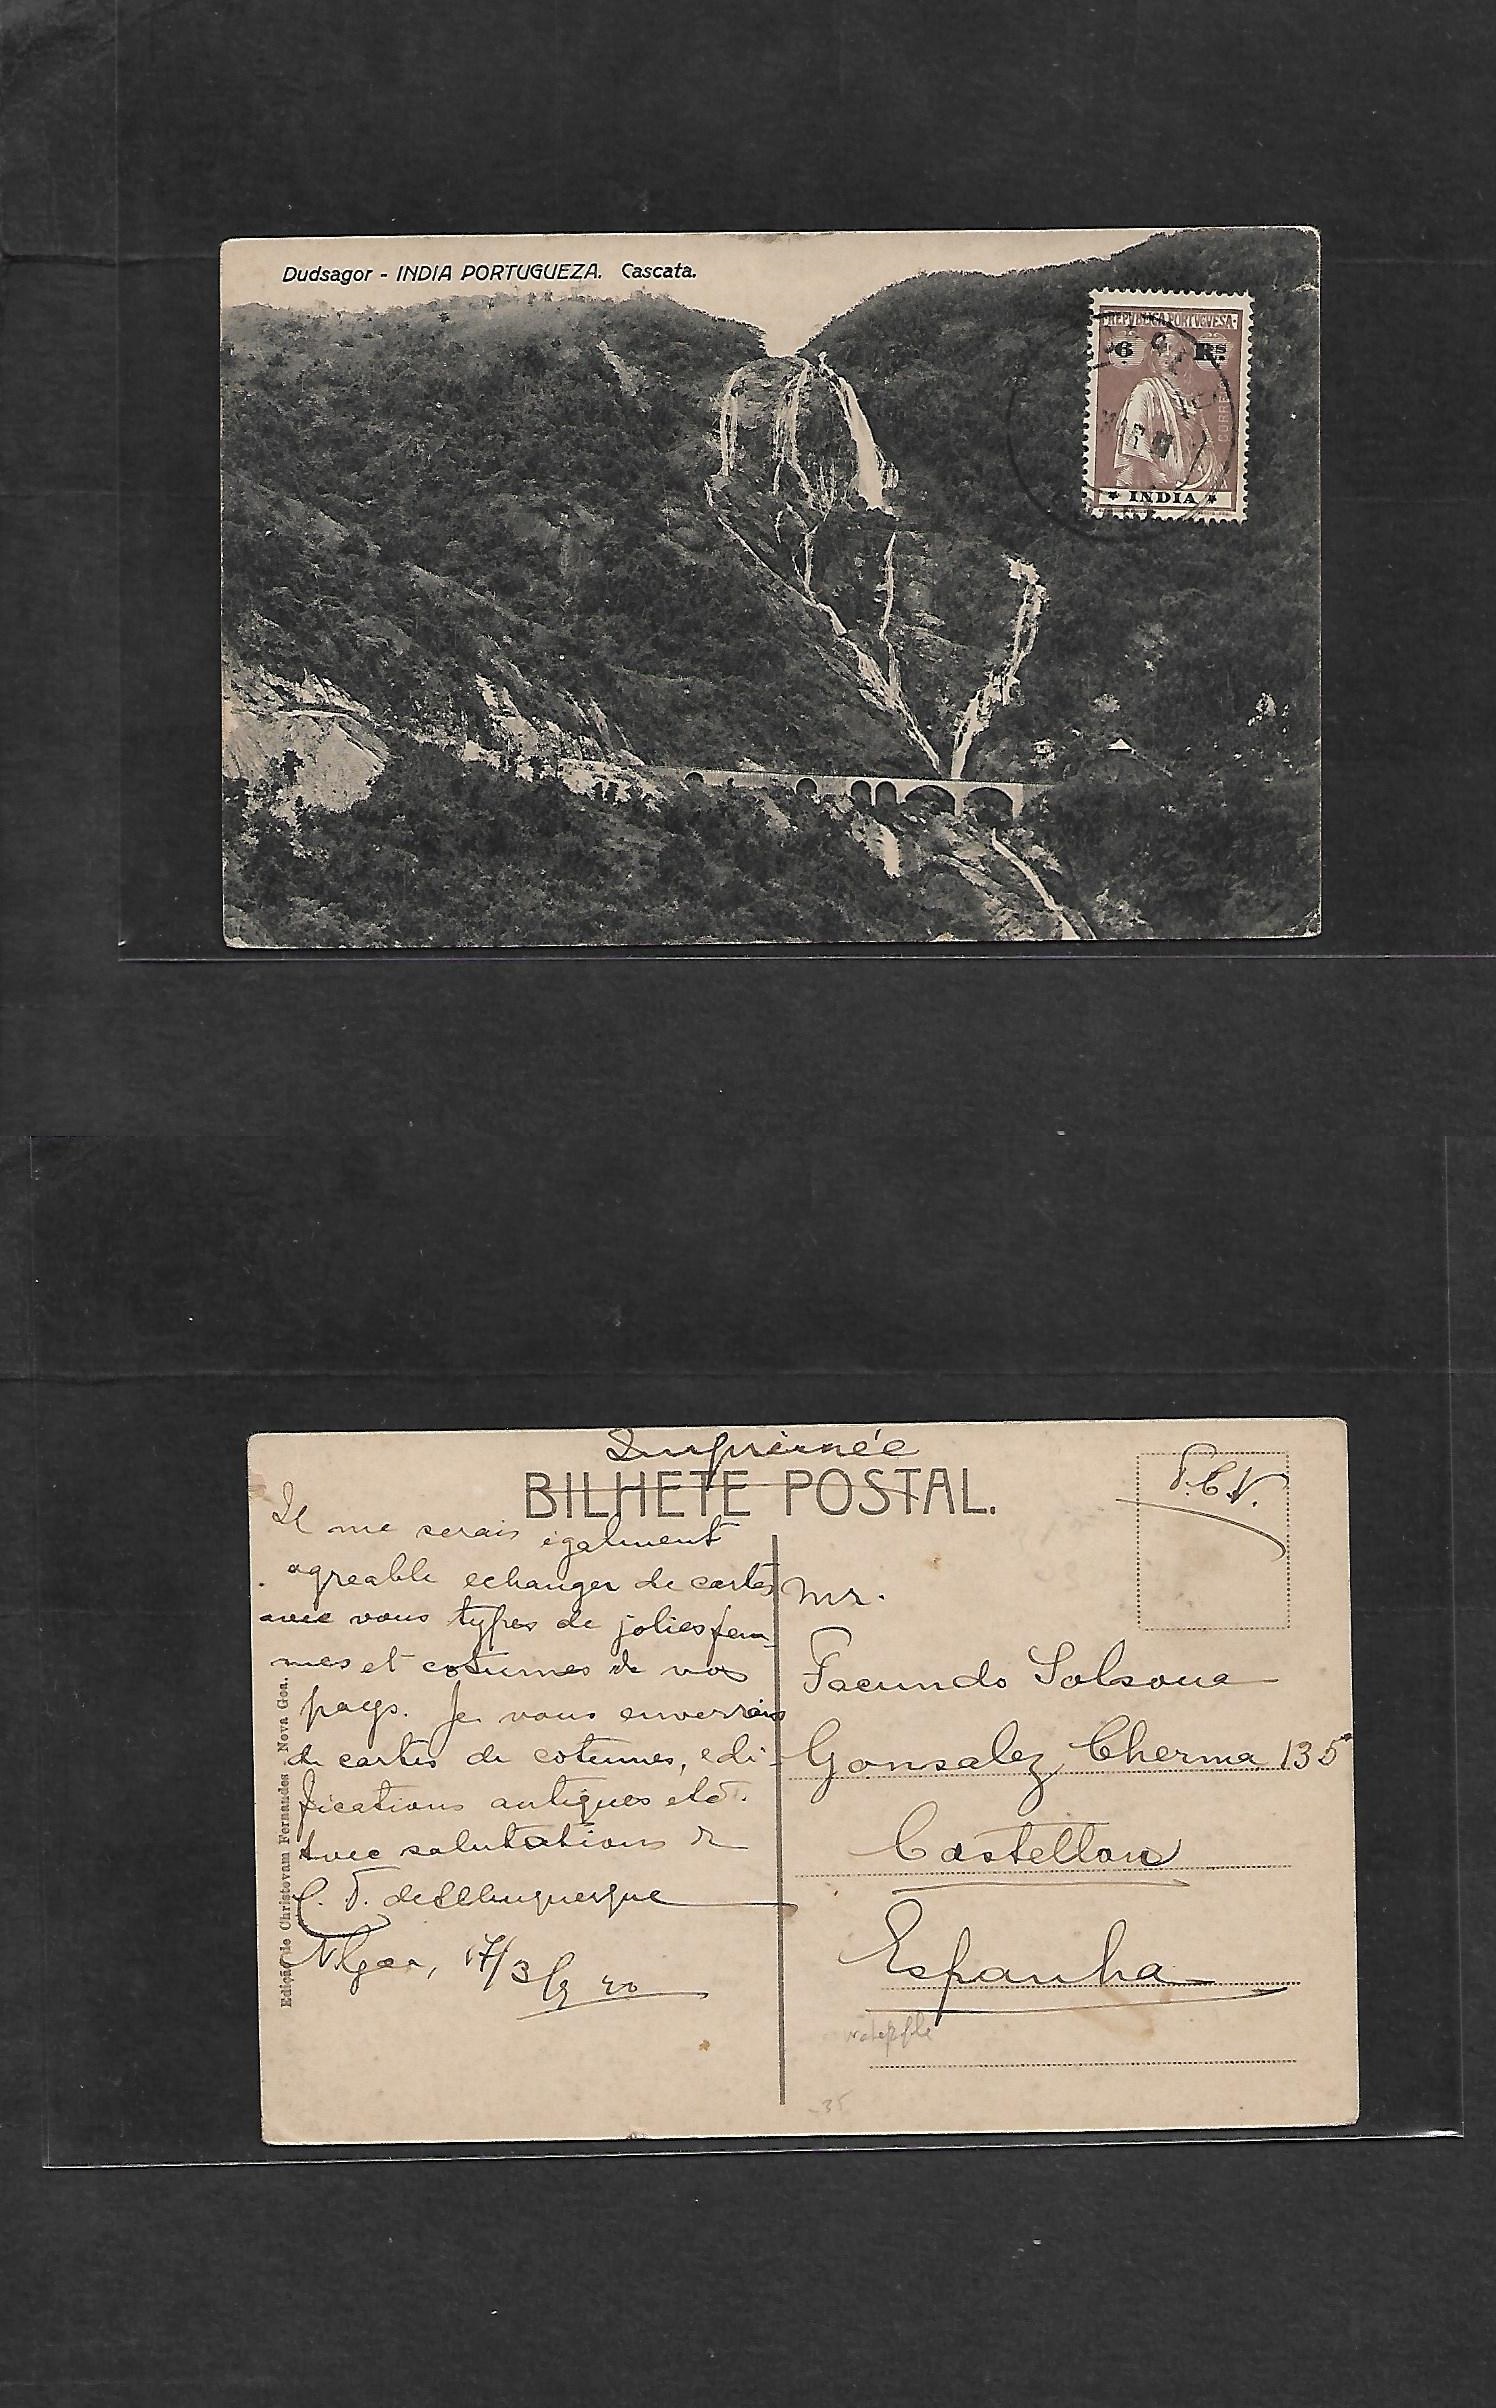 Dudsagor - INDIA PORTUGUEZA. Cascata.
REPUBLICA PORTUGUESA
6 Rs
CORREIO
INDIA
Imprimée
BILHETE POSTAL.
T.C.V.
Il me serais égalment
agreable echanger de cartes
avec vous types de jolies fem-
mes et cotumes de vos
pays. Je vous enverrais
de cartes de cotumes, edi-
fications antiques etc.
Avec salutations de
C. T. de Albuquerque
N/goa, 17/3/9 20
Edição de Christovam Fernandes Nova Goa.
Mr.
Facundo Solsona
Gonsalez Cherma 135
Castellon
Espanha
-35